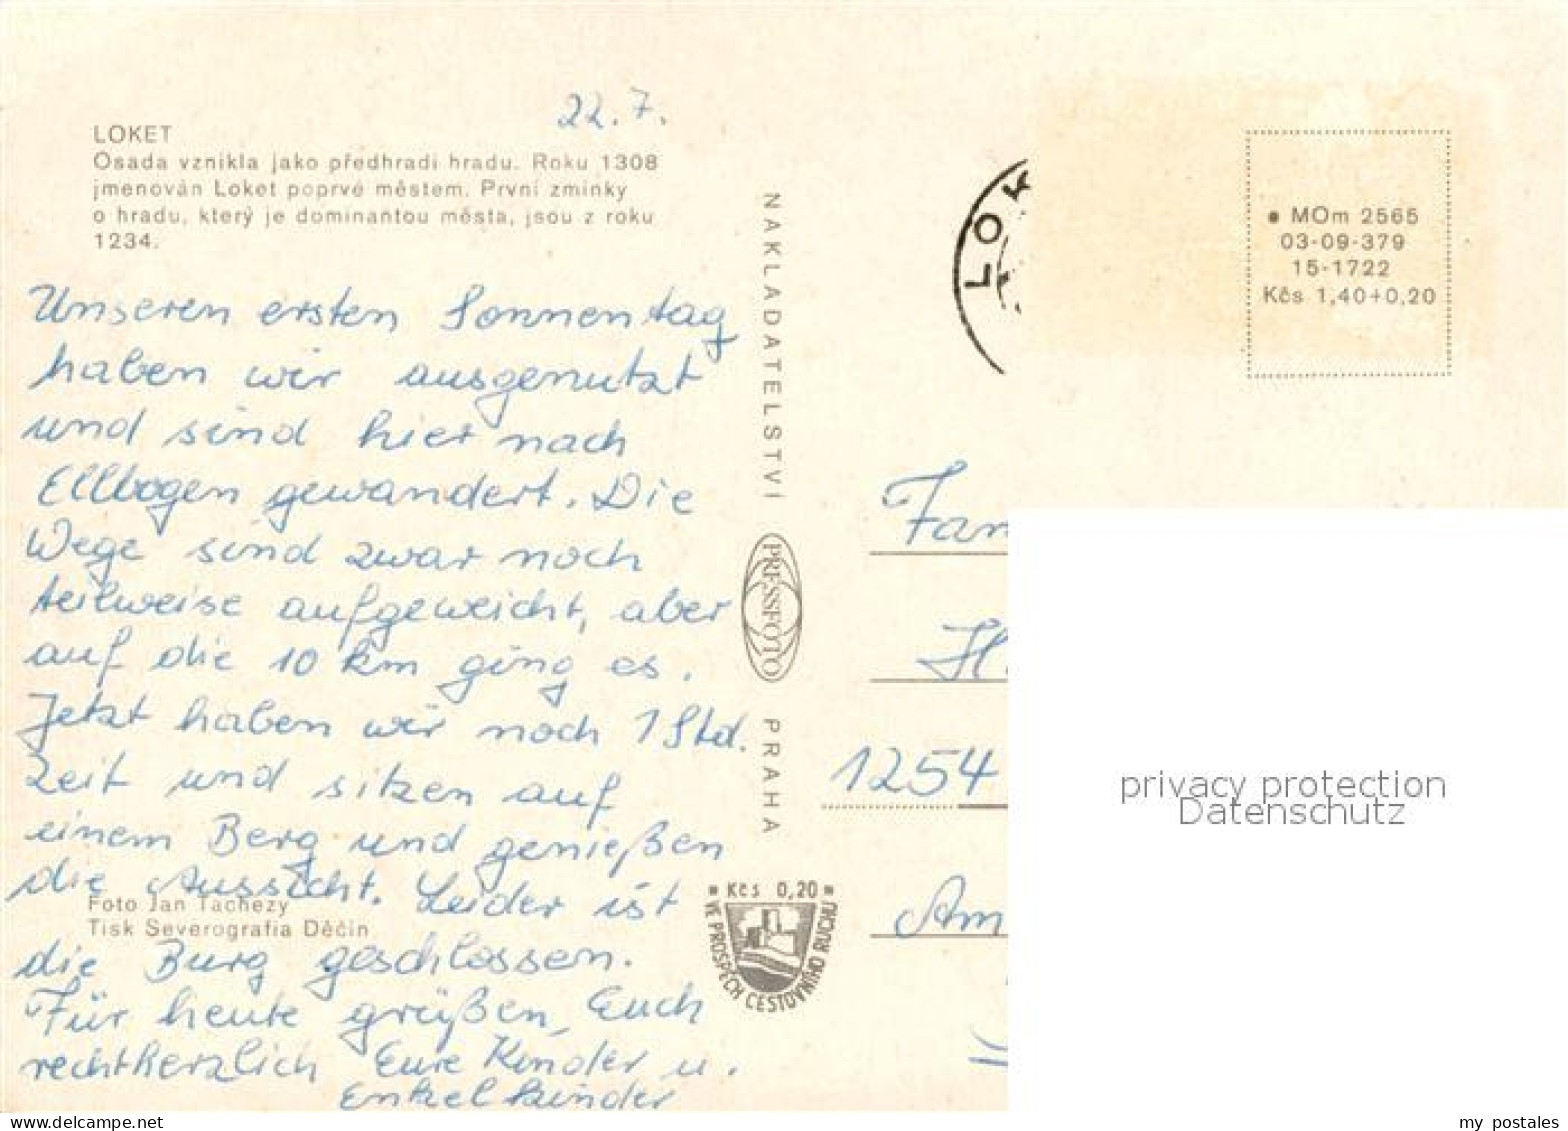 22.7.
LOKET
Osada vznikla jako předhradí hradu. Roku 1308
jmenován Loket poprvé městem. První zmínky
o hradu, který je dominantou města, jsou z roku
1234.
Unseren ersten Sonnentag
haben wir ausgenutzt
und sind hier nach
Ellbogen gewandert. Die
Wege sind zwar noch
teilweise aufgeweicht, aber
auf die 10 km ging es.
Jetzt haben wir noch 1 Std.
Zeit und sitzen auf
einem Berg und genießen
die Aussicht. Leider ist
die Burg geschlossen.
Für heute grüßen Euch
rechtherzlich Eure Kinder u.
Enkelkinder
Foto Jan Tachezy
Tisk Severografia Děčín
NAKLADATELSTVÍ
PRESSFOTO
PRAHA
Kčs 0,20
VE PROSPĚCH CESTOVNÍHO RUCHU
LOK
• MOm 2565
03-09-379
15-1722
Kčs 1,40+0,20
Fam
H
1254
Am
privacy protection
Datenschutz
my postales